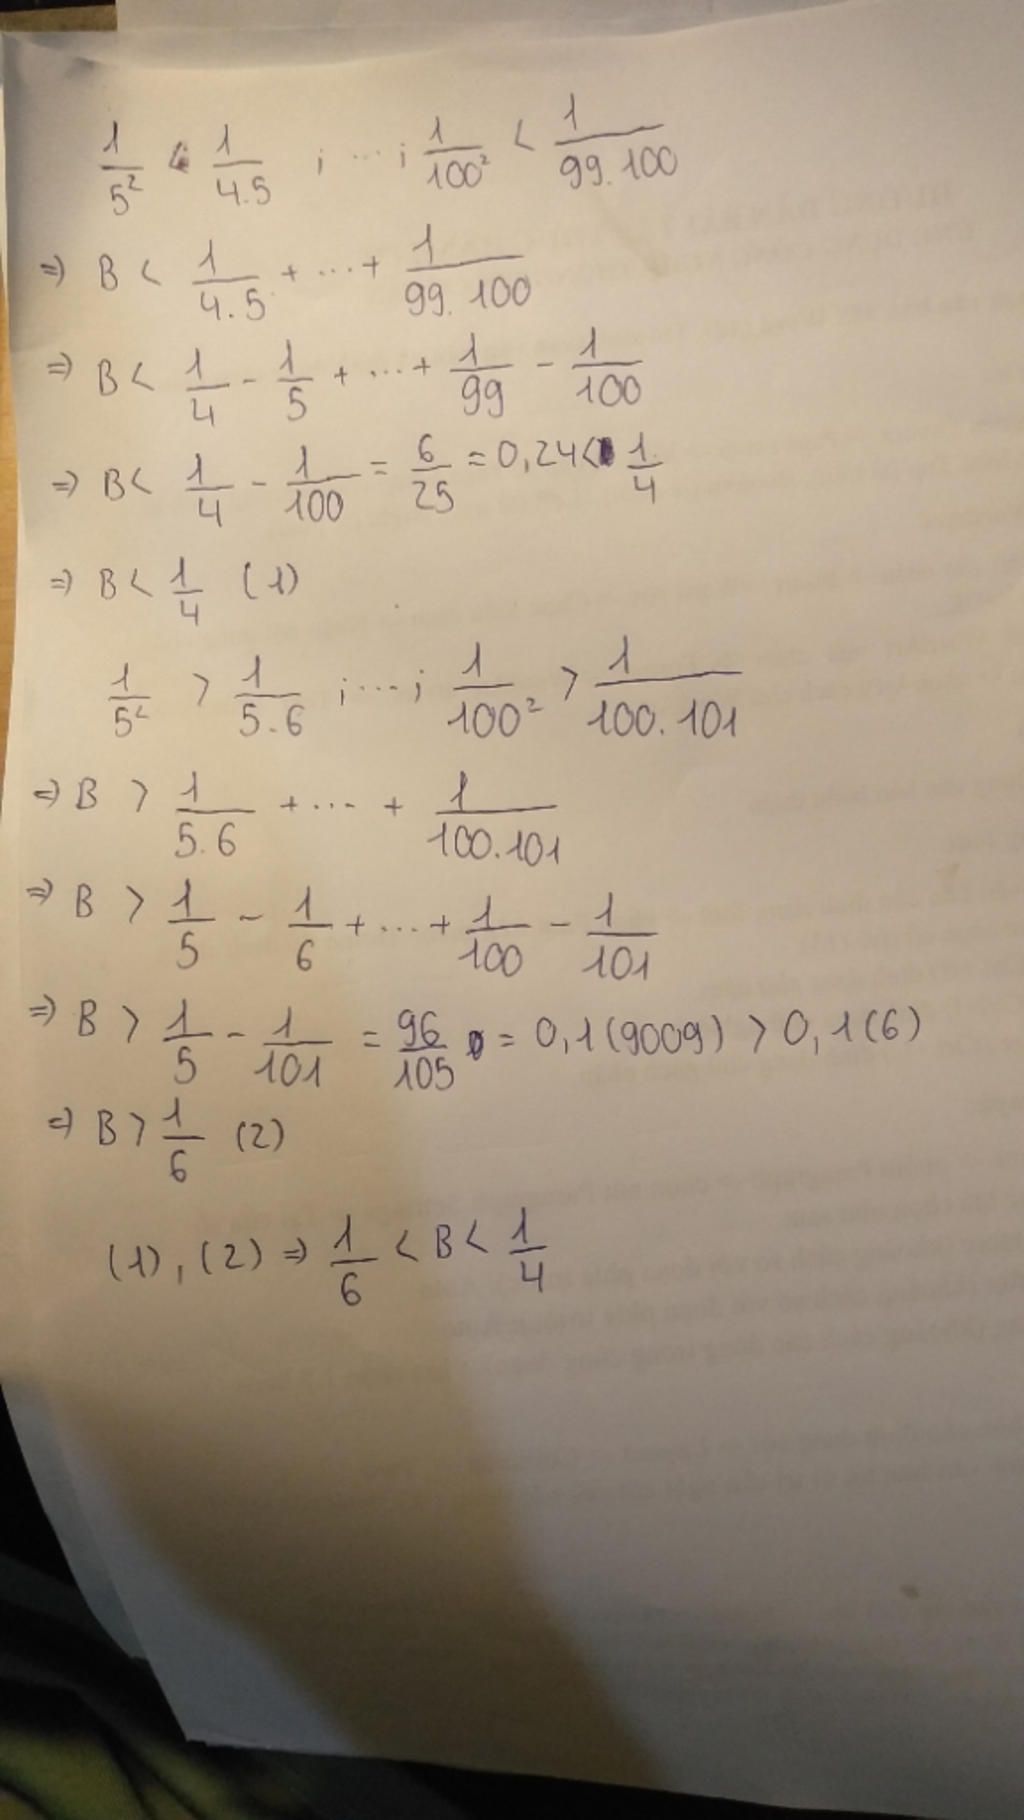 1/5² < 1/4.5 ; ... ; 1/100² < 1/99.100
⇒ B < 1/4.5 + ... + 1/99.100
⇒ B < 1/4 - 1/5 + ... + 1/99 - 1/100
⇒ B < 1/4 - 1/100 = 6/25 = 0,24 < 1/4
⇒ B < 1/4 (1)
1/5² > 1/5.6 ; ... ; 1/100² > 1/100.101
⇒ B > 1/5.6 + ... + 1/100.101
⇒ B > 1/5 - 1/6 + ... + 1/100 - 1/101
⇒ B > 1/5 - 1/101 = 96/105 = 0,1(9009) > 0,1(6)
⇒ B > 1/6 (2)
(1), (2) ⇒ 1/6 < B < 1/4